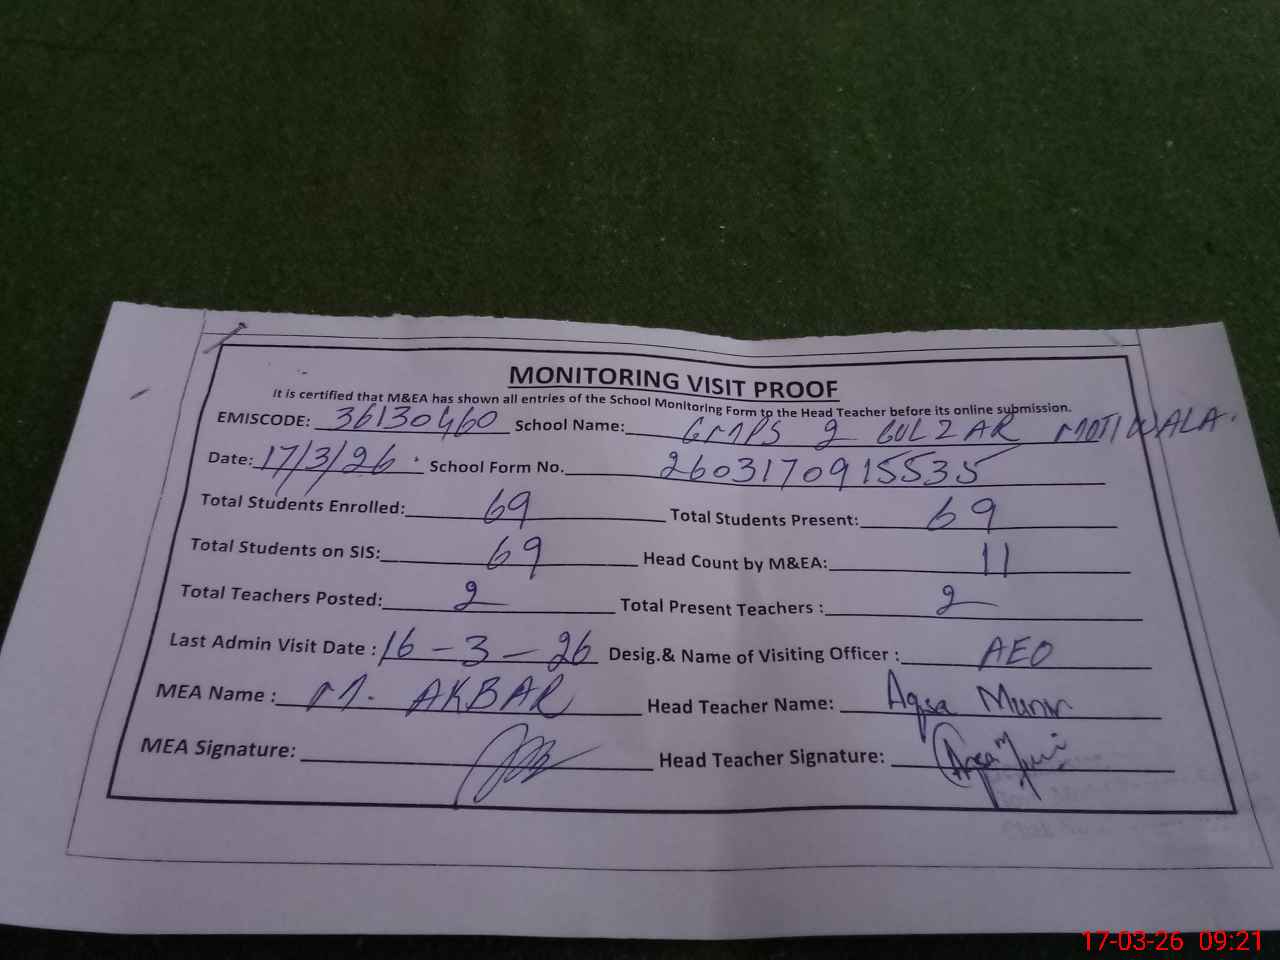 MONITORING VISIT PROOF
It is certified that M&EA has shown all entries of the School Monitoring Form to the Head Teacher before its online submission.
EMISCODE: 36130460 School Name: GMPS 2 GULZAR MOTIWALA.
Date: 17/3/26 School Form No. 2603170915535
Total Students Enrolled: 69 Total Students Present: 69
Total Students on SIS: 69 Head Count by M&EA: 11
Total Teachers Posted: 2 Total Present Teachers : 2
Last Admin Visit Date : 16-3-26 Desig.& Name of Visiting Officer : AEO
MEA Name : M. AKBAR Head Teacher Name: Aqsa Munir
MEA Signature: Head Teacher Signature:
17-03-26 09:21